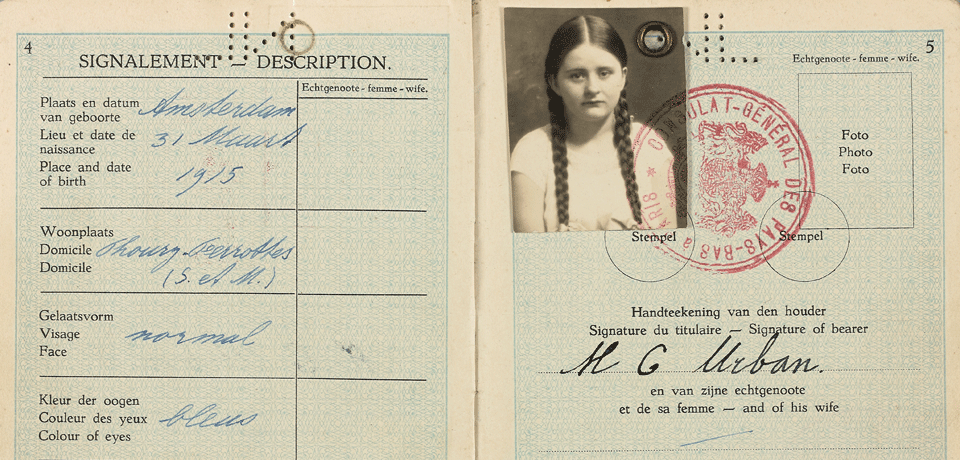 4
SIGNALEMENT — DESCRIPTION.
Echtgenoote - femme - wife.
Plaats en datum
van geboorte
Lieu et date de
naissance
Place and date
of birth
Amsterdam
31 Maart
1915
Woonplaats
Domicile
Domicile
Thoury-Ferrottes
(S. et M.)
Gelaatsvorm
Visage
Face
normal
Kleur der oogen
Couleur des yeux
Colour of eyes
bleus
5
Echtgenoote - femme - wife.
Foto
Photo
Foto
CONSULAT-GÉNÉRAL DES PAYS-BAS à PARIS *
Stempel
Stempel
Handteekening van den houder
Signature du titulaire — Signature of bearer
M C Urban.
en van zijne echtgenoote
et de sa femme — and of his wife